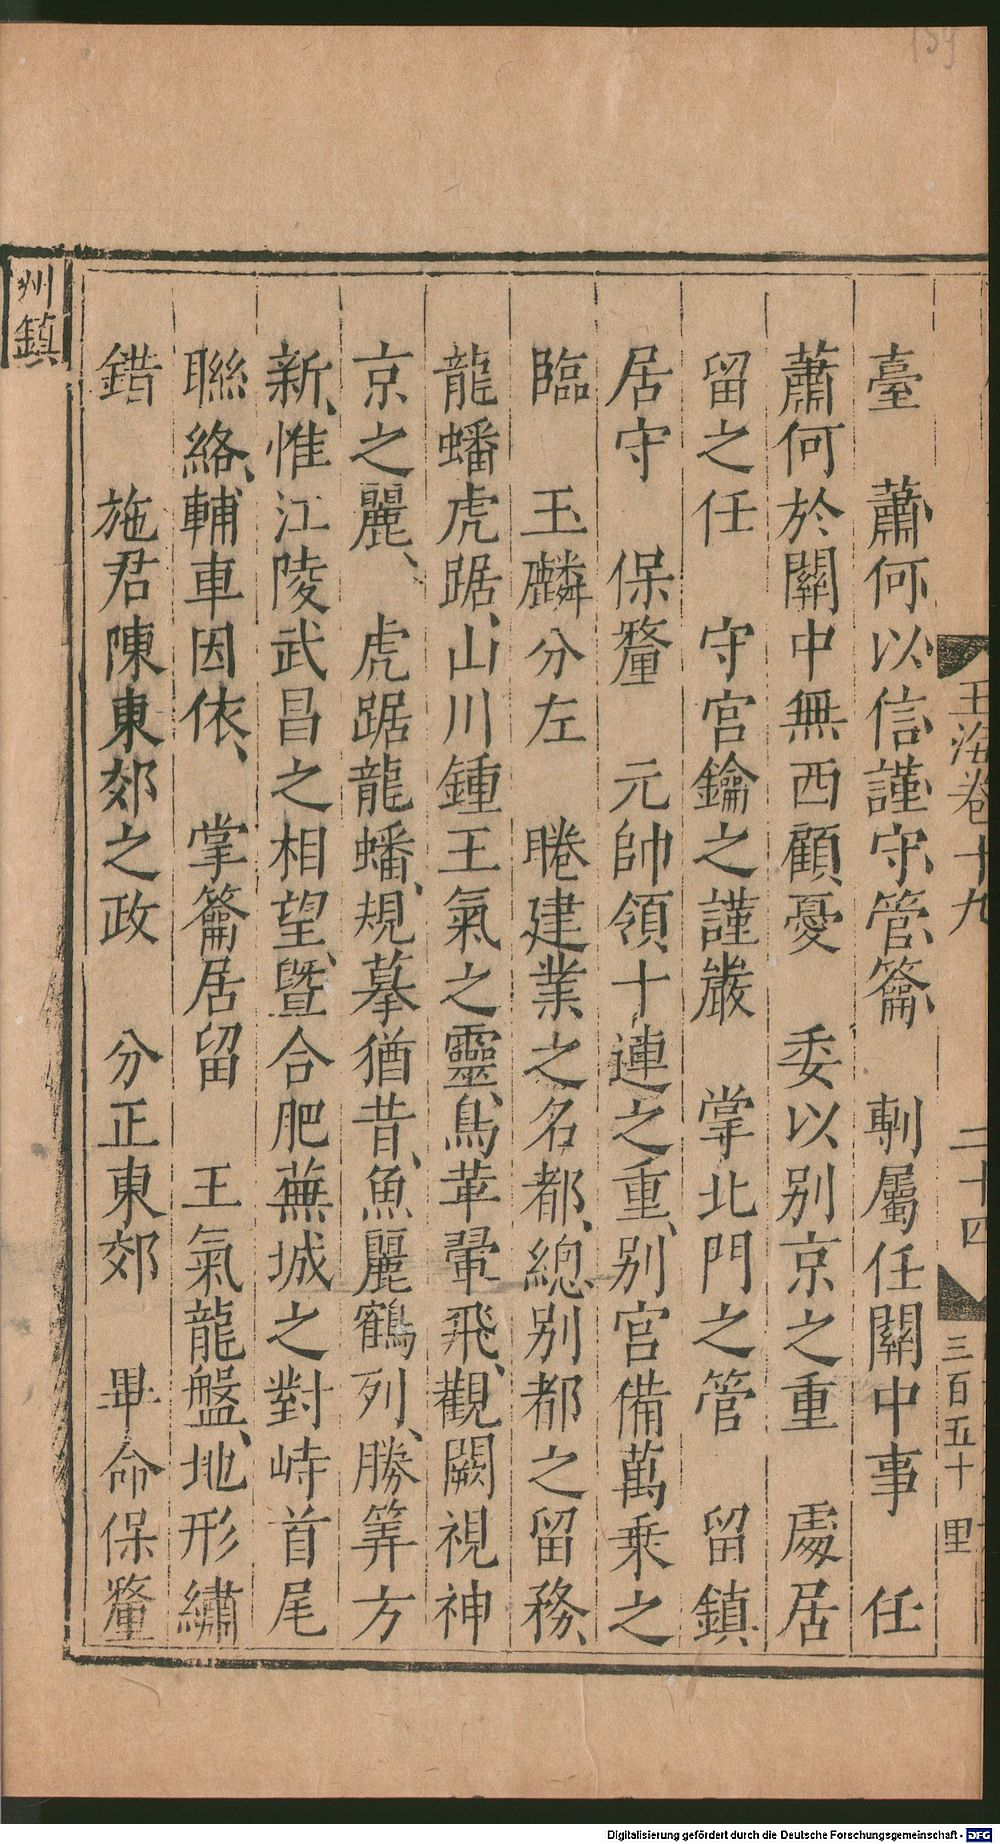 臺 蕭何以信謹守管籥 剸屬任關中事 任
蕭何於關中無西顧憂 委以別京之重 處居
留之任 守宮鑰之謹嚴 掌北門之管 留鎮
居守 保釐 元帥領十連之重、別宮備萬乘之
臨 玉麟分左 睠建業之名都、總別都之留務、
龍蟠虎踞、山川鍾王氣之靈、鳥革翬飛、觀闕視神
京之麗、 虎踞龍蟠、規摹猶昔、魚麗鶴列、勝筭方
新、惟江陵武昌之相望、曁合肥蕪城之對峙首尾
聯絡、輔車因依、 掌籥居留 王氣龍盤、地形繡
錯 施君陳東郊之政 分正東郊 畢命保釐
玉海卷十九
二十四
三百五十
里
州鎮
159
Digitalisierung gefördert durch die Deutsche Forschungsgemeinschaft - DFG